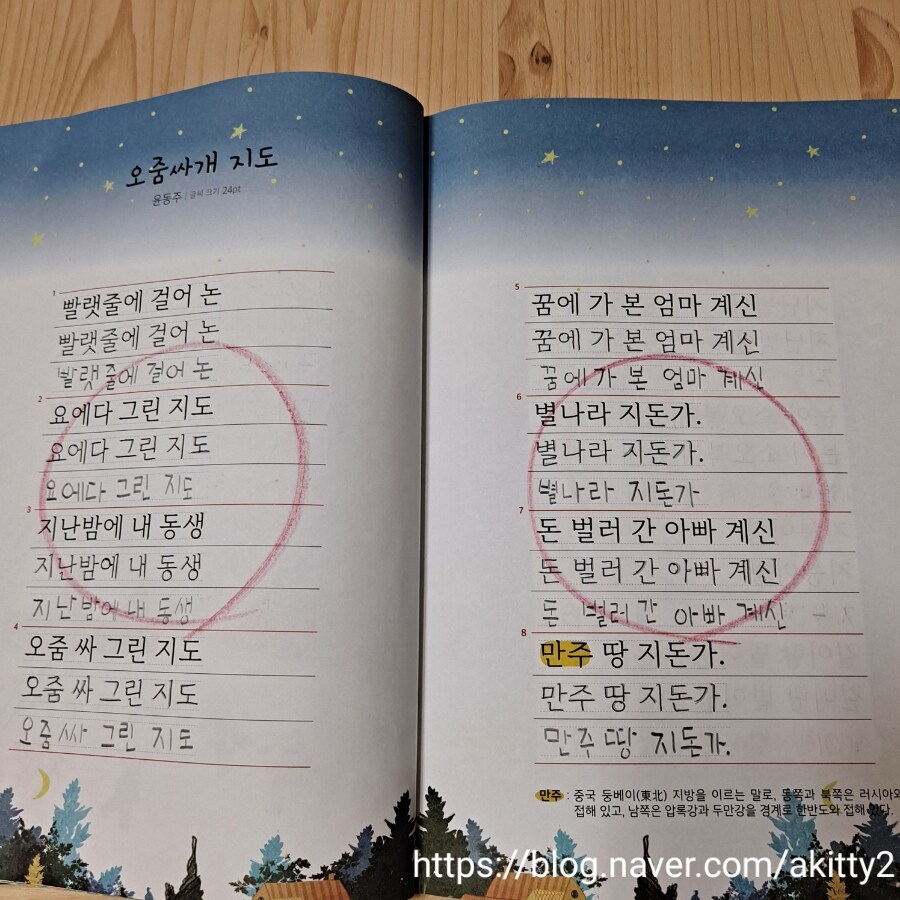 오줌싸개 지도
윤동주 | 글씨 크기 24pt
1
빨랫줄에 걸어 논
빨랫줄에 걸어 논
빨랫줄에 걸어 논
2
요에다 그린 지도
요에다 그린 지도
요에다 그린 지도
3
지난밤에 내 동생
지난밤에 내 동생
지난밤에 내 동생
4
오줌 싸 그린 지도
오줌 싸 그린 지도
오줌 싸 그린 지도
5
꿈에 가 본 엄마 계신
꿈에 가 본 엄마 계신
꿈에 가 본 엄마 계신
6
별나라 지돈가.
별나라 지돈가.
별나라 지돈가
7
돈 벌러 간 아빠 계신
돈 벌러 간 아빠 계신
돈 벌러 간 아빠 계신
8
만주 땅 지돈가.
만주 땅 지돈가.
만주 땅 지돈가.
만주 : 중국 둥베이(東北) 지방을 이르는 말로, 동쪽과 북쪽은 러시아와
접해 있고, 남쪽은 압록강과 두만강을 경계로 한반도와 접해 있다.
https://blog.naver.com/akitty2